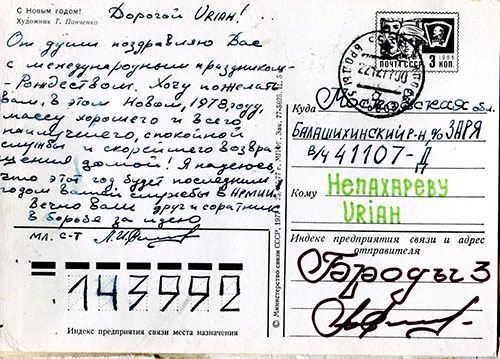 С Новым годом!
Художник Т. Панченко
Дорогой URIAH!
От души поздравляю Вас
с международным праздником -
- Рождеством. Хочу пожелать
Вам, в этом Новом, 1978, году,
массу хорошего и всего
наилучшего, спокойной
службы и скорейшего возвра
щения домой! Я надеюсь
что этот год будет последним
годом вашей службы в Армии.
Вечно Ваш друг и соратник
в борьбе за идею
мл. с-т
143992
Индекс предприятия связи места назначения
© Министерство связи СССР, 1977
ПОЧТА СССР
1966
3 КОП.
Куда Московская обл.
БАЛАШИХИНСКИЙ Р-Н, ЗАРЯ
в/ч 41107-Д
Кому НЕПАХАРЕВУ
URIAH
Индекс предприятия связи и адрес
отправителя